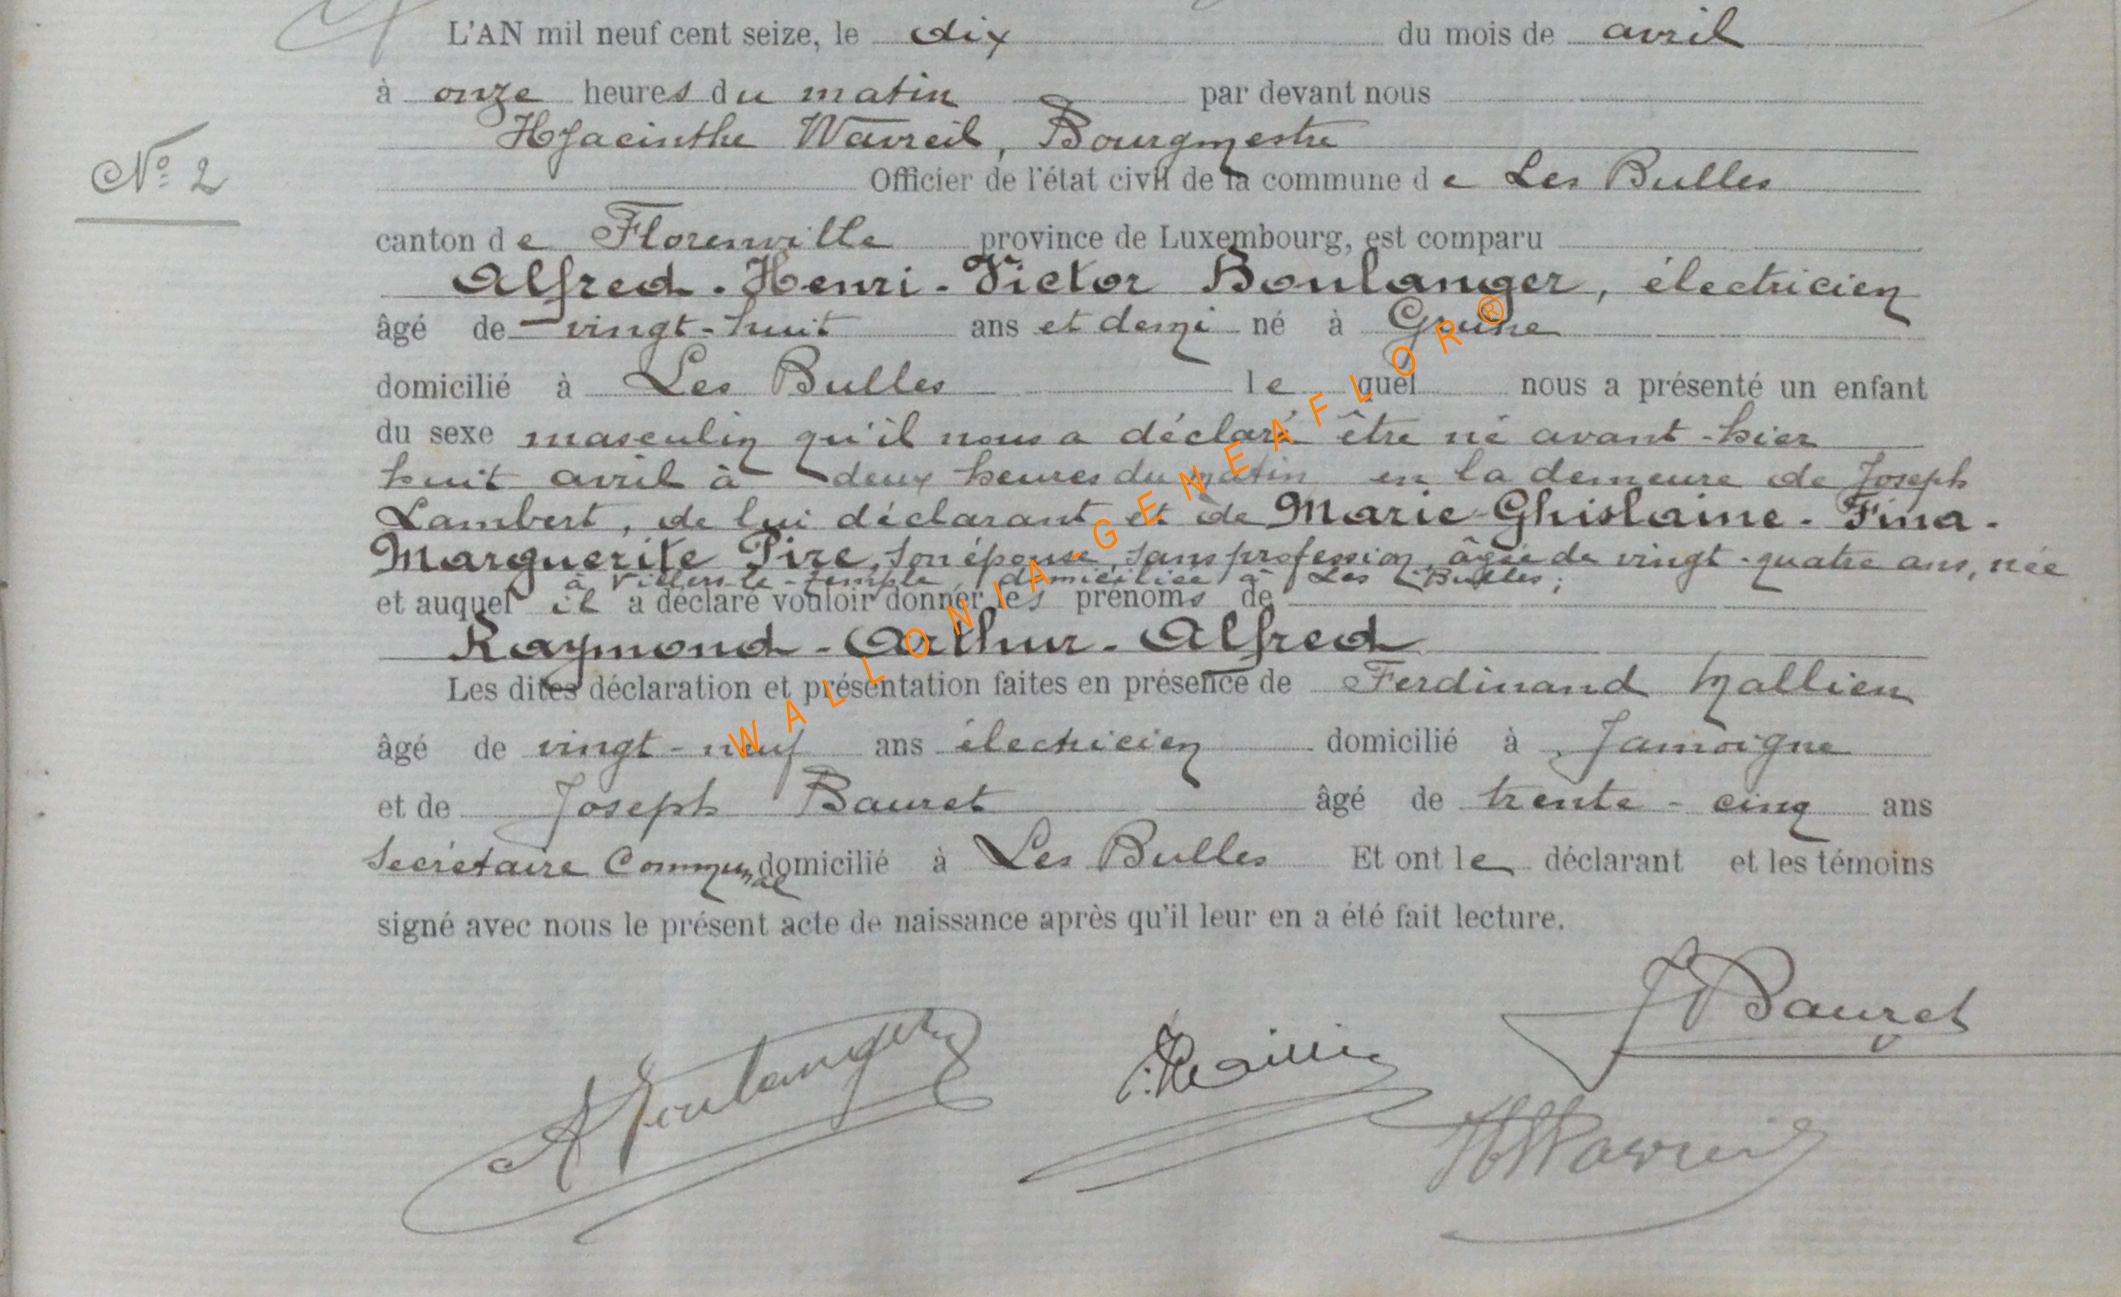 L'AN mil neuf cent seize, le dix du mois de avril
à onze heures du matin par devant nous
Hyacinthe Wavreil, Bourgmestre
N° 2
Officier de l'état civil de la commune de Les Bulles
canton de Florenville province de Luxembourg, est comparu
Alfred-Henri-Victor Boulanger, électricien
âgé de vingt-huit ans et demi né à Grune
domicilié à Les Bulles lequel nous a présenté un enfant
du sexe masculin qu'il nous a déclaré être né avant-hier
huit avril à deux heures du matin en la demeure de Joseph
Lambert, de lui déclarant et de Marie-Ghislaine-Fina-
Marguerite Pire, son épouse, sans profession, âgée de vingt-quatre ans, née
à Villers-le-Temple, domiciliée à Les Bulles;
et auquel il a déclaré vouloir donner les prénoms de
Raymond-Arthur-Alfred
Les dites déclaration et présentation faites en présence de Ferdinand Mallien
âgé de vingt-neuf ans électricien domicilié à Jamoigne
et de Joseph Bauret âgé de trente-cinq ans
Secrétaire Communal domicilié à Les Bulles Et ont le déclarant et les témoins
signé avec nous le présent acte de naissance après qu'il leur en a été fait lecture.
J Bauret
A Boulanger
HWavreil
WALLONIA-GENEAFLOR®